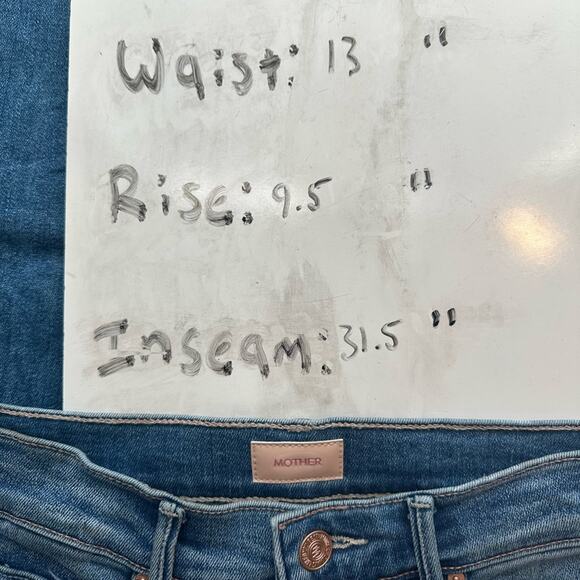 Waist: 13 "
Rise: 9.5 "
Inseam: 31.5 "
MOTHER